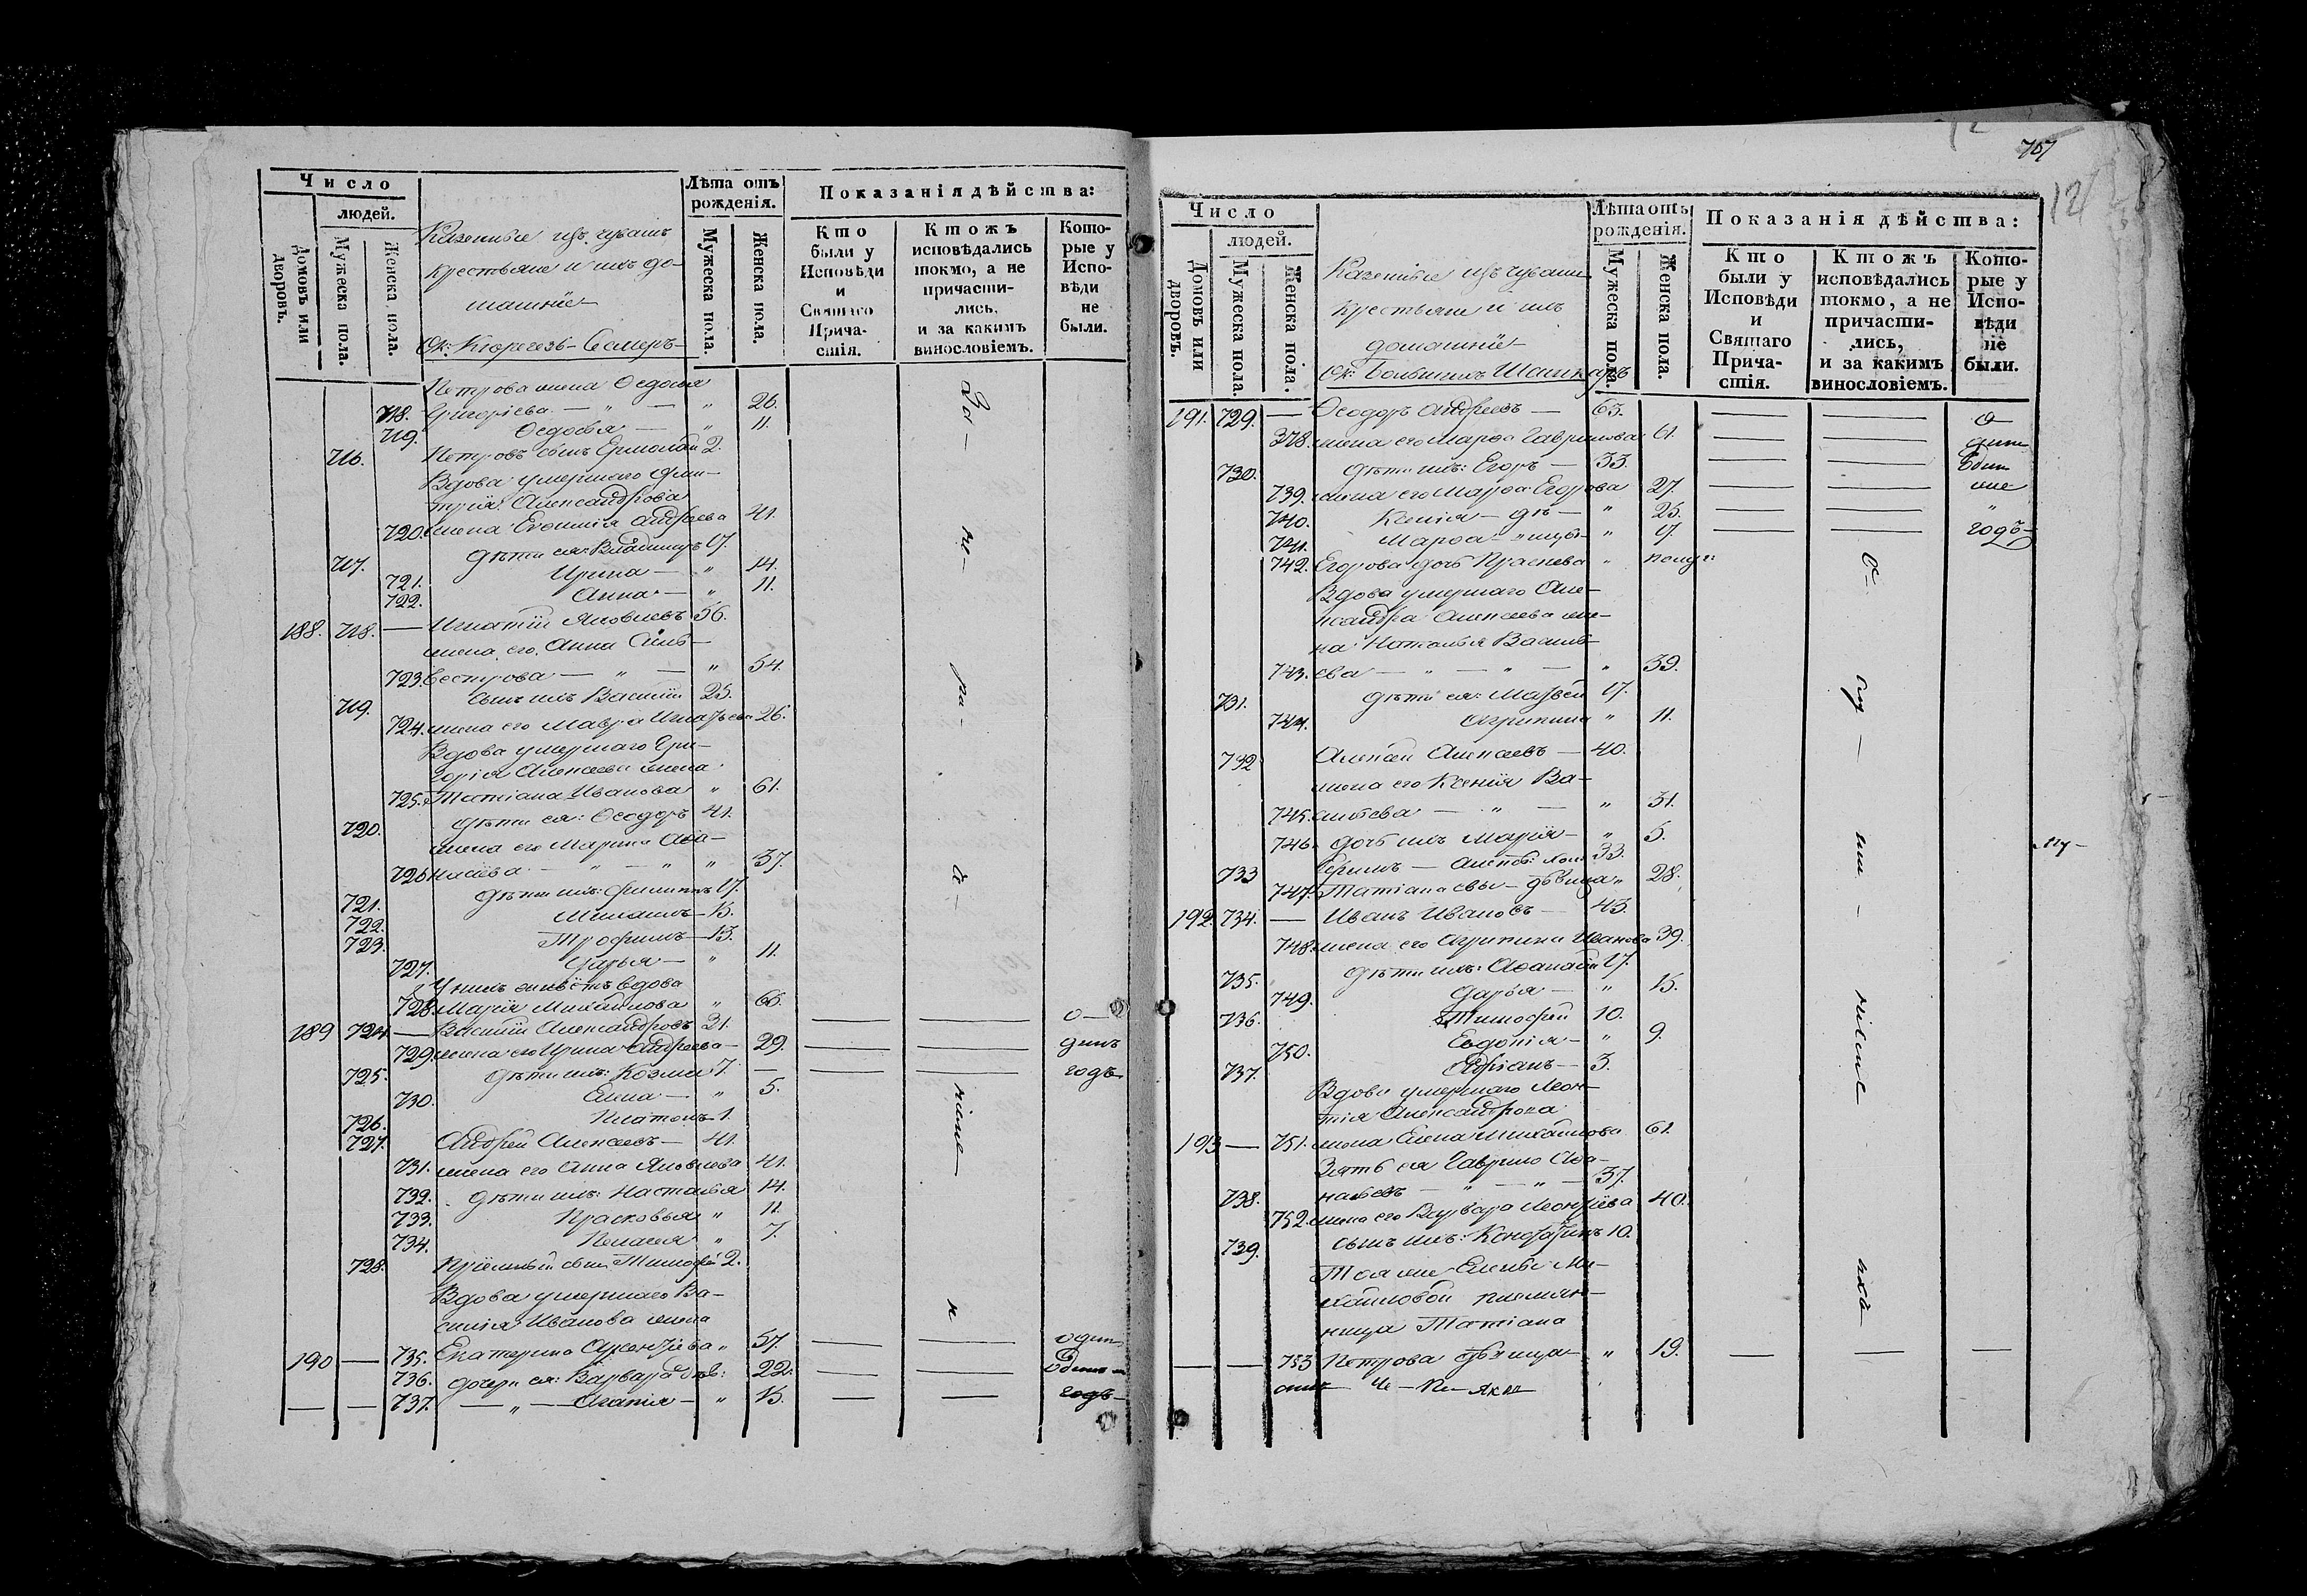 Число
людей.
Домовъ или дворовъ.
Мужеска пола.
Женска пола.
Казенные изъ чувашъ
крестьяне и ихъ до-
машніе
Ок: Кюрегезь-Семеръ
Лѣта отъ рожденія.
Мужеска пола.
Женска пола.
Показанія дѣйства:
Кто были у Исповѣди и Святаго Причастія.
Ктожъ исповѣдались токмо, а не причастились, и за какимъ винословіемъ.
Которые у Исповѣди не были.
Петрова жена Ѳедосья
718. Григорьева — " — " 26.
719. Ѳедосья — " 11.
716. Петровъ сынъ Ермолай 2.
Вдова умершаго Дми-
трія Александрова
720. жена Евфимія Андреева 41.
717. дѣти ея: Владимиръ 17.
721. Ирина — " 14.
722. Анна — " 11.
188. 718. — Игнатій Яковлевъ 56.
жена его Анна Силь-
723. вестрова — " — " 54.
719. сынъ ихъ Василій 25.
724. жена его Мавра Игнатьева 26.
Вдова умершаго Гри-
горія Алексеева жена
725. Татіана Иванова " 61.
720. дѣти ея: Ѳеодоръ 41.
жена его Марина Аѳа-
726. насіева — " — " " 37.
721. дѣти ихъ: Филиппъ 17.
722. Михаилъ — 15.
723. Трофимъ — 13.
727. Дарья — " 11.
У нихъ живётъ вдова
728. Марія Михайлова " 66.
189 724. — Василій Александровъ 31. — — о—
729. жена его Ирина Андреева — 29. — — динъ
725. дѣти ихъ: Козма 7. — — — годъ
730. Елена — " 5.
726. Платонъ 1.
727. Андрей Алексеевъ — 41.
731. жена его Анна Яковлева 41.
732. дѣти ихъ: Настасья 14.
733. Прасковья " 11.
734. Пелагея " 7.
728. Пріемный сынъ Тимофей 2.
Вдова умершаго Ва-
силія Иванова жена
190 — 735. Екатерина Арсентіева " 57. — — одинъ
736. дочери ея: Варвара дѣв: 22. — —
— — 737. — " — Агапія — " 15. — — годъ—
707
121
Число
людей.
Домовъ или дворовъ.
Мужеска пола.
Женска пола.
Казенные изъ чувашъ
крестьяне и ихъ
домашніе
Ок: Большихъ Шашкаръ
Лѣта отъ рожденія.
Мужеска пола.
Женска пола.
Показанія дѣйства:
Кто были у Исповѣди и Святаго Причастія.
Ктожъ исповѣдались токмо, а не причастились, и за какимъ винословіемъ.
Которые у Исповѣди не были.
191. 729. — Ѳеодоръ Андреевъ — 63. — — о—
378. жена его Марѳа Гаврилова 61. — — динъ
730. дѣти ихъ: Егоръ — 33. — —
739. жена его Марѳа Егорова 27. — —
740. Ксенія — дѣ — " 25. — — "
741. Марѳа — " вицы " 17. — — годъ
742. Егорова дочь Праскева " полуг:
Вдова умершаго Але-
ксандра Алексеева же-
на Наталья Василь-
743. ева — " — " — " 39.
731. дѣти ея: Матвей 17.
744. Агрипина " 11.
732 Алексей Алексеевъ — 40.
жена его Ксенія Ва-
745. сильева — " — " 31.
746. дочь ихъ Марія — " 5.
733 Ефимъ — Алексѣ: 33.
747. Татіана евы — дѣвица " 28.
192. 734. — Иванъ Ивановъ — 43.
748. жена его Агрипина Иванова 39.
735. дѣти ихъ: Аѳанасій 17.
749. Дарья — " 15.
736. Тимофей 10.
750. Евдокія — " 9.
737. Адріанъ — 3.
Вдова умершаго Леон-
тія Александрова
193 — 751. жена Елена Михайлова 61.
Зять ея Гаврило Аѳа-
738. насьевъ — " — " — 37.
752. жена его Варвара Леонтіева 40.
739. сынъ ихъ: Констатинъ 10.
Тоя же Елены Ми-
хайловой племян-
ница Татіана
— — 753 Петрова дѣвица — " 19. — — —